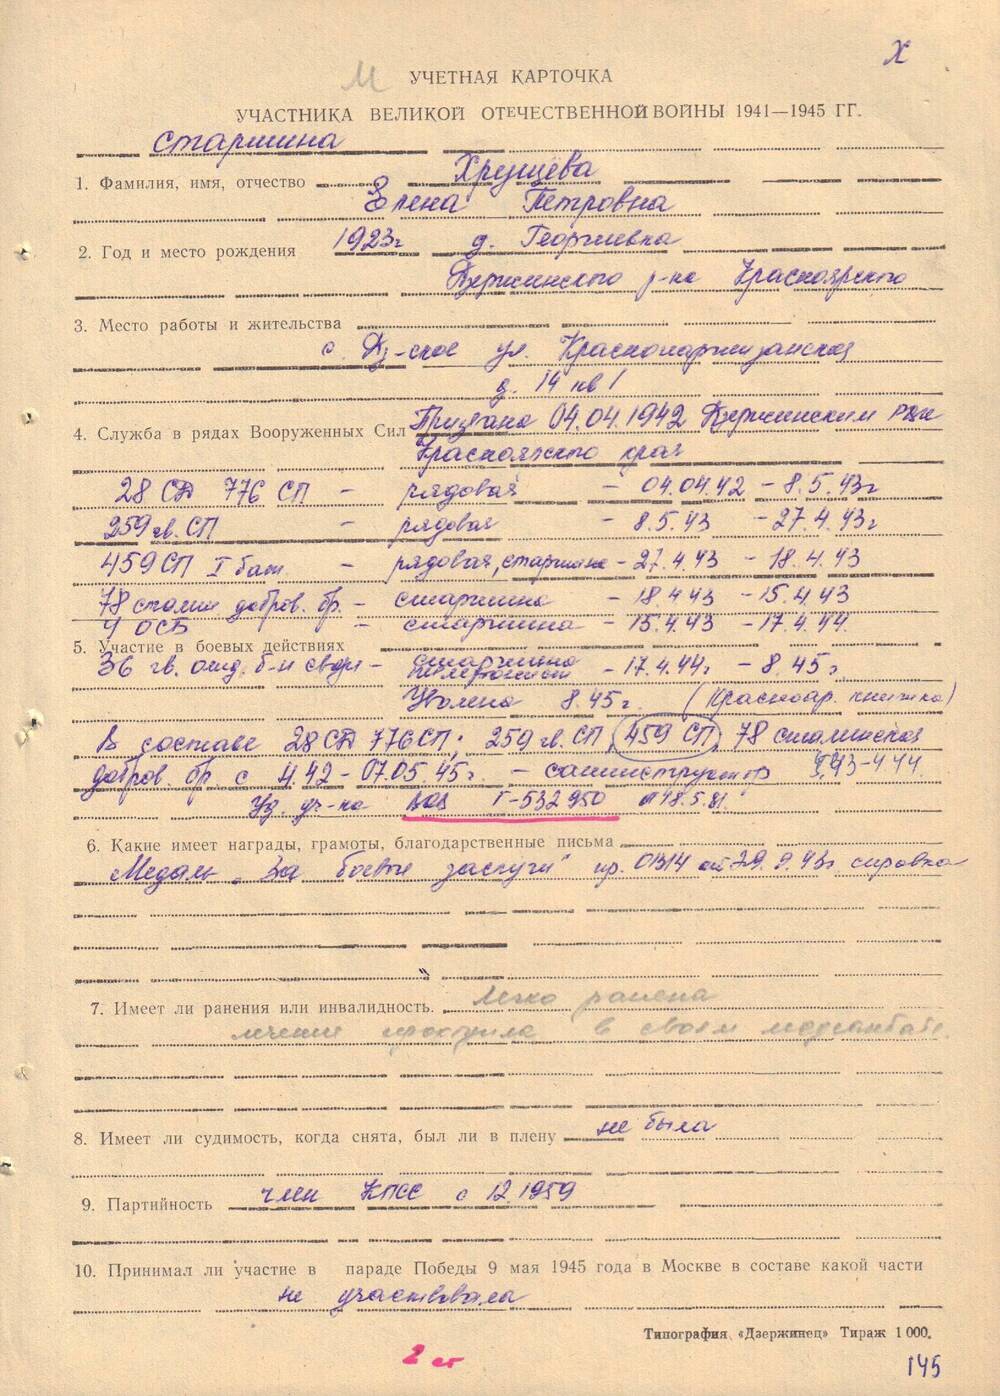 Х
М
УЧЕТНАЯ КАРТОЧКА
УЧАСТНИКА ВЕЛИКОЙ ОТЕЧЕСТВЕННОЙ ВОЙНЫ 1941—1945 ГГ.
старшина
1. Фамилия, имя, отчество Хрущева
Елена Петровна
2. Год и место рождения 1923г д. Георгиевка
Дзержинского р-на Красноярского
3. Место работы и жительства
с. Дз-ское ул. Краснопартизанская
д. 14 кв 1
4. Служба в рядах Вооруженных Сил Призвана 04.04.1942 Дзержинским РВК
Красноярского края
28 СД 776 СП – рядовая – 04.04.42 – 8.5.43г
259 гв. СП – рядовая – 8.5.43 – 27.4.43г
459 СП I бат. – рядовая, старшина – 27.4.43 – 18.4.43
78 сталин добров. бр. – старшина – 18.4.43 – 15.4.43
4 ОСБ – старшина – 15.4.43 – 17.4.44.
5. Участие в боевых действиях
36 гв. отд. б-н связи – старшина телефонист – 17.4.44г – 8.45г
Уволена 8.45г. (Красноар. книжка)
В составе 28 СД 776 СП; 259 гв. СП, 459 СП, 78 сталинская
добров. бр. с 4.42 – 07.05.45г. – санинструктор
Уд. уч-ка ВОВ Г-532950 от 18.5.81.
6. Какие имеет награды, грамоты, благодарственные письма
Медаль „За боевые заслуги" пр. 01314 от 29.9.43г справка
7. Имеет ли ранения или инвалидность. Легко ранена
лечение проходила в своем медсанбате.
8. Имеет ли судимость, когда снята, был ли в плену не была
9. Партийность член КПСС с 12.1959
10. Принимал ли участие в параде Победы 9 мая 1945 года в Москве в составе какой части
не участвовала
Типография «Дзержинец» Тираж 1 000.
2 ст
145